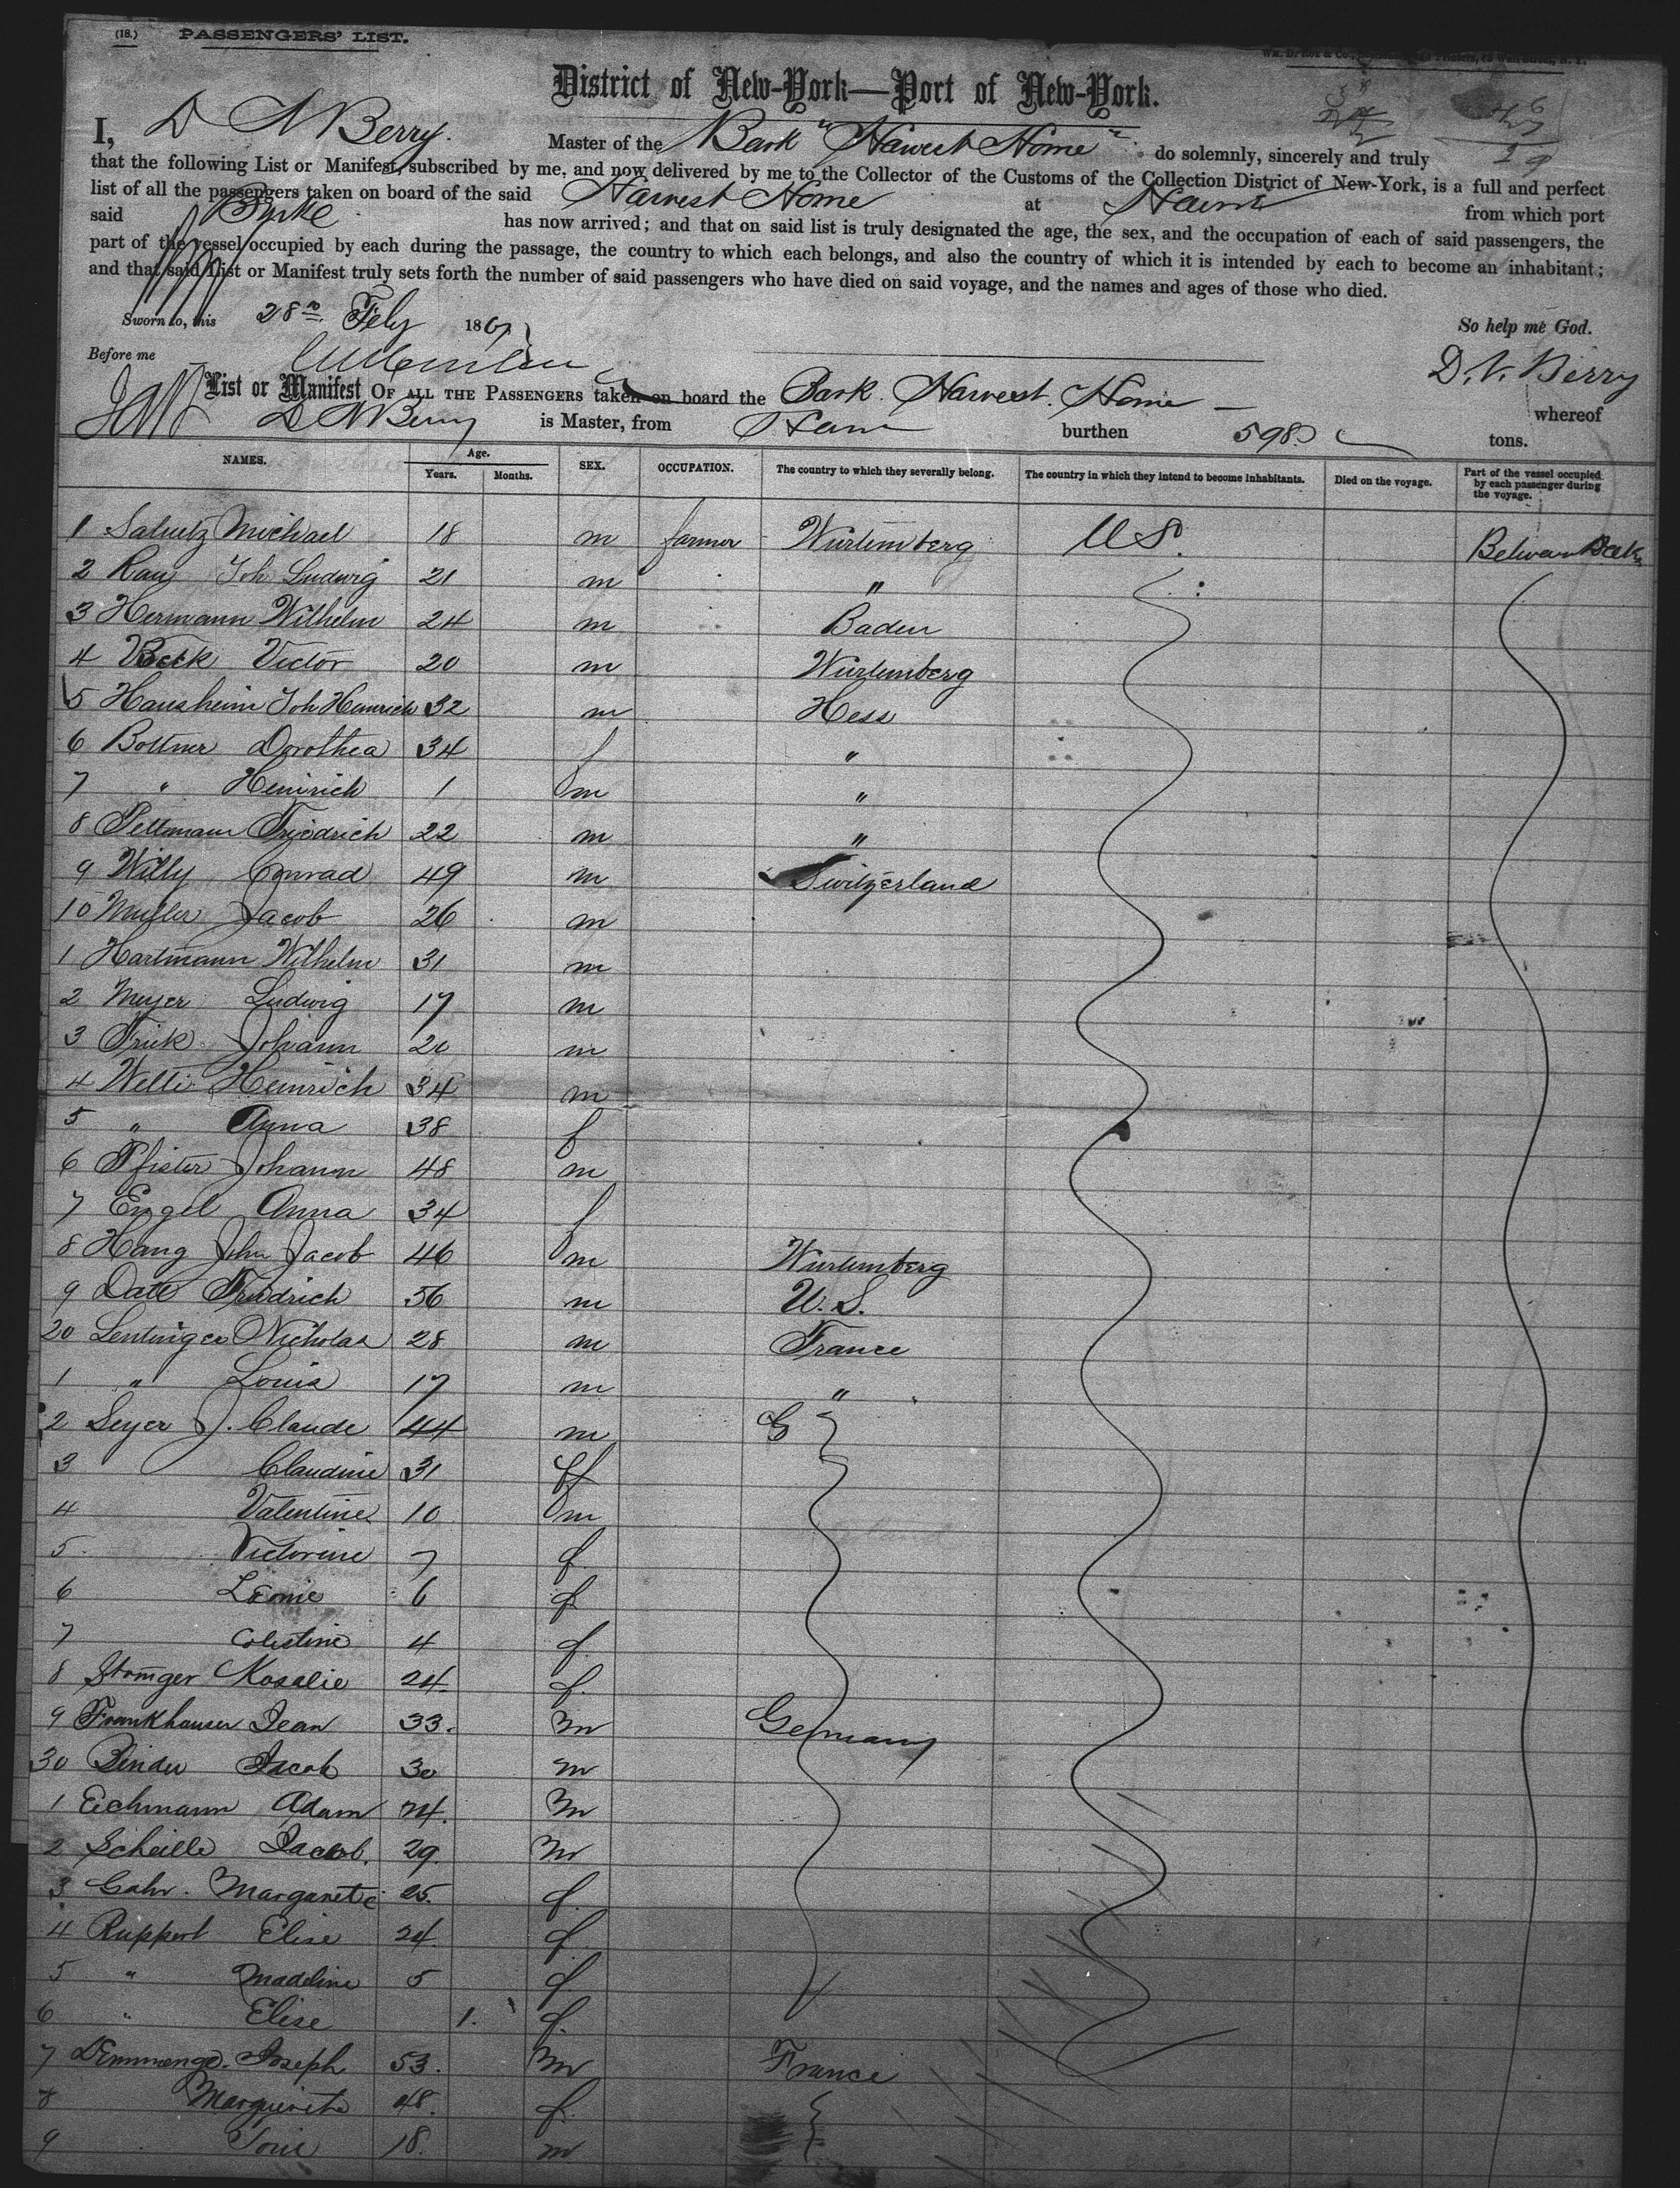 (18.) PASSENGERS' LIST.
District of New-York—Port of New-York.
I, D N Berry Master of the Bark "Harvest Home" do solemnly, sincerely and truly
that the following List or Manifest, subscribed by me, and now delivered by me to the Collector of the Customs of the Collection District of New-York, is a full and perfect
list of all the passengers taken on board of the said Harvest Home at Havre from which port
said Barke has now arrived; and that on said list is truly designated the age, the sex, and the occupation of each of said passengers, the
part of the vessel occupied by each during the passage, the country to which each belongs, and also the country of which it is intended by each to become an inhabitant;
and that said List or Manifest truly sets forth the number of said passengers who have died on said voyage, and the names and ages of those who died.
Sworn to, this 28th Feby 1867 So help me God.
Before me D. N. Berry
List or Manifest OF ALL THE PASSENGERS taken on board the Bark Harvest Home whereof
D N Berry is Master, from Havre burthen 598 tons.
NAMES. Age. Years. Months. SEX. OCCUPATION. The country to which they severally belong. The country in which they intend to become inhabitants. Died on the voyage. Part of the vessel occupied by each passenger during the voyage.
1 Michael 18 m farmer Wurtemberg U S. Between Deck
2 Rau Joh Ludwig 21 m "
3 Hermann Wilhelm 24 m Baden
4 Victor 20 m Wurtemberg
5 Hausheim Joh Heinrich 32 m Hess
6 Bottner Dorothea 34 f "
7 " Heinrich 1 m "
8 Friedrich 22 m "
9 Willy Conrad 49 m Switzerland
10 Muller Jacob 26 m
1 Hartmann Wilhelm 31 m
2 Meyer Ludwig 17 m
3 Frick Johann 20 m
4 Welti Heinrich 34 m
5 " Anna 38 f
6 Pfister Johann 48 m
7 Engel Anna 34 f
8 Haug John Jacob 46 m Wurtemberg
9 Friedrich 56 m U. S.
20 Nicholas 28 m France
1 " Louis 17 m "
2 Seyer J. Claude 44 m G
3 Claudine 31 f
4 Valentine 10 m
5 Victorine 7 f
6 Leonie 6 f
7 Celestine 4 f
8 Rosalie 24 f
9 Frankhauser Jean 33 m Germany
30 Binder Jacob 30 m
1 Eichmann Adam 24 m
2 Scheille Jacob 29 m
3 Gahr Margarete 25 f
4 Ruppert Elise 24 f
5 " Madeline 5 f
6 " Elise 1 f
7 Joseph 53 m France
8 Marguerite 48 f
9 18 m